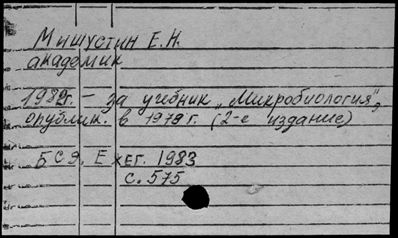 Мишустин Е.Н.
академик
1982г. – за учебник „Микробиология",
опублик. в 1979 г. (2-е издание)
БСЭ. Ежег. 1983
с. 575